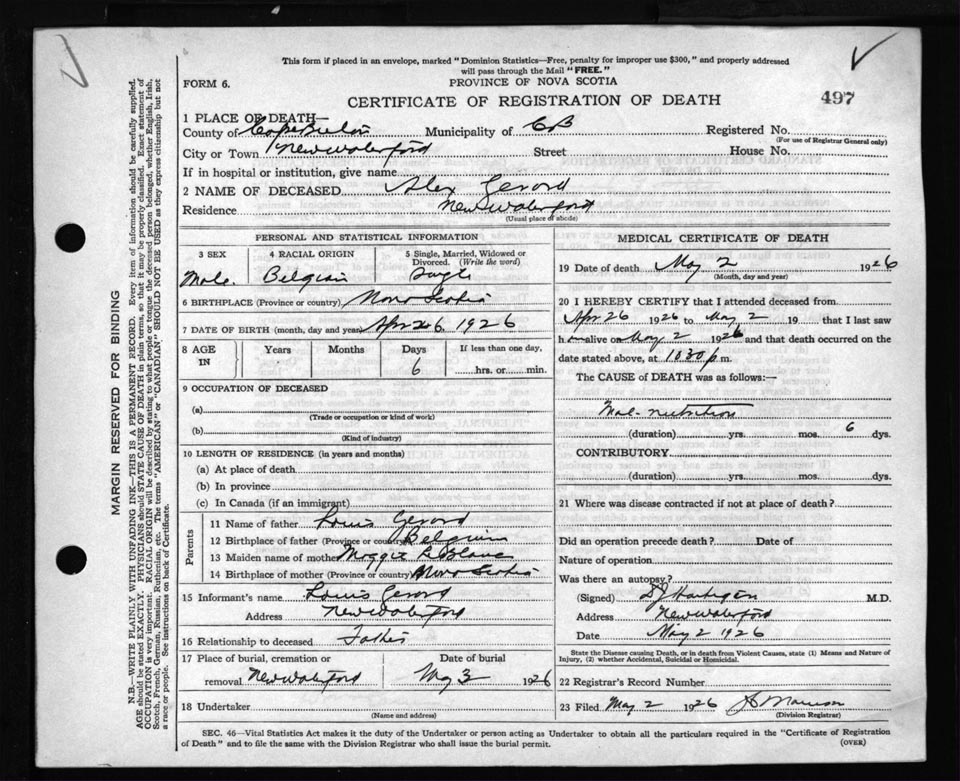 This form if placed in an envelope, marked "Dominion Statistics—Free, penalty for improper use $300," and properly addressed
will pass through the Mail "FREE."
FORM 6.
PROVINCE OF NOVA SCOTIA
CERTIFICATE OF REGISTRATION OF DEATH
497
1 PLACE OF DEATH—
County of Cape Breton Municipality of CB Registered No.
(For use of Registrar General only)
City or Town New Waterford Street House No.
If in hospital or institution, give name
2 NAME OF DECEASED Alex Gerord
Residence New Waterford
(Usual place of abode)
PERSONAL AND STATISTICAL INFORMATION
3 SEX 4 RACIAL ORIGIN 5 Single, Married, Widowed or
Divorced. (Write the word)
Male. Belgian Single
6 BIRTHPLACE (Province or country) Nova Scotia
7 DATE OF BIRTH (month, day and year) Apr 26 1926
8 AGE IN Years Months Days If less than one day,
6 hrs. or min.
9 OCCUPATION OF DECEASED
(a)
(Trade or occupation or kind of work)
(b)
(Kind of industry)
10 LENGTH OF RESIDENCE (in years and months)
(a) At place of death
(b) In province
(c) In Canada (if an immigrant)
Parents
11 Name of father Louis Gerord
12 Birthplace of father (Province or country) Belgium
13 Maiden name of mother Maggie LeBlanc
14 Birthplace of mother (Province or country) Nova Scotia
15 Informant's name Louis Gerord
Address New Waterford
16 Relationship to deceased Father
17 Place of burial, cremation or Date of burial
removal New Waterford May 3 1926
18 Undertaker
(Name and address)
MEDICAL CERTIFICATE OF DEATH
19 Date of death May 2 1926
(Month, day and year)
20 I HEREBY CERTIFY that I attended deceased from
Apr 26 1926 to May 2 19 that I last saw
him alive on May 2 1926 and that death occurred on the
date stated above, at 1030 p m.
The CAUSE of DEATH was as follows:—
Mal-nutrition
(duration) yrs. mos. 6 dys.
CONTRIBUTORY
(duration) yrs. mos. dys.
21 Where was disease contracted if not at place of death?
Did an operation precede death? Date of
Nature of operation
Was there an autopsy?
(Signed) M.D.
Address New Waterford
Date May 2 1926
State the Disease causing Death, or in death from Violent Causes, state (1) Means and Nature of
Injury, (2) whether Accidental, Suicidal or Homicidal.
22 Registrar's Record Number
23 Filed May 2 1926
(Division Registrar)
SEC. 46—Vital Statistics Act makes it the duty of the Undertaker or person acting as Undertaker to obtain all the particulars required in the "Certificate of Registration
of Death" and to file the same with the Division Registrar who shall issue the burial permit. (OVER)
MARGIN RESERVED FOR BINDING
N.B.—WRITE PLAINLY WITH UNFADING INK—THIS IS A PERMANENT RECORD. Every item of information should be carefully supplied.
AGE should be stated EXACTLY. PHYSICIANS should STATE CAUSE OF DEATH in plain terms, so that it may be properly classified. Exact statement of
OCCUPATION is very important. RACIAL ORIGIN will be described by stating to what people or tongue the deceased person belonged, whether English, Irish,
Scotch, French, German, Russian, Ruthenian, etc. The terms "AMERICAN" or "CANADIAN" SHOULD NOT BE USED as they express citizenship but not
a race or people. See instructions on back of Certificate.